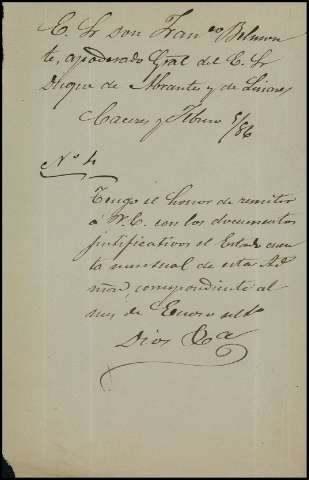 E. Sr Don Franco Belmon
te, apoderado Gral del E. Sr
Duque de Abrantes y de Linares
Caceres y Febrero 5/86
No 4
Tengo el honor de remitir
á V.E. con los documentos
justificativos el Estado cuen
ta mensual de esta Ad
mon, correspondiente al
mes de Enero ulto
Dios &a